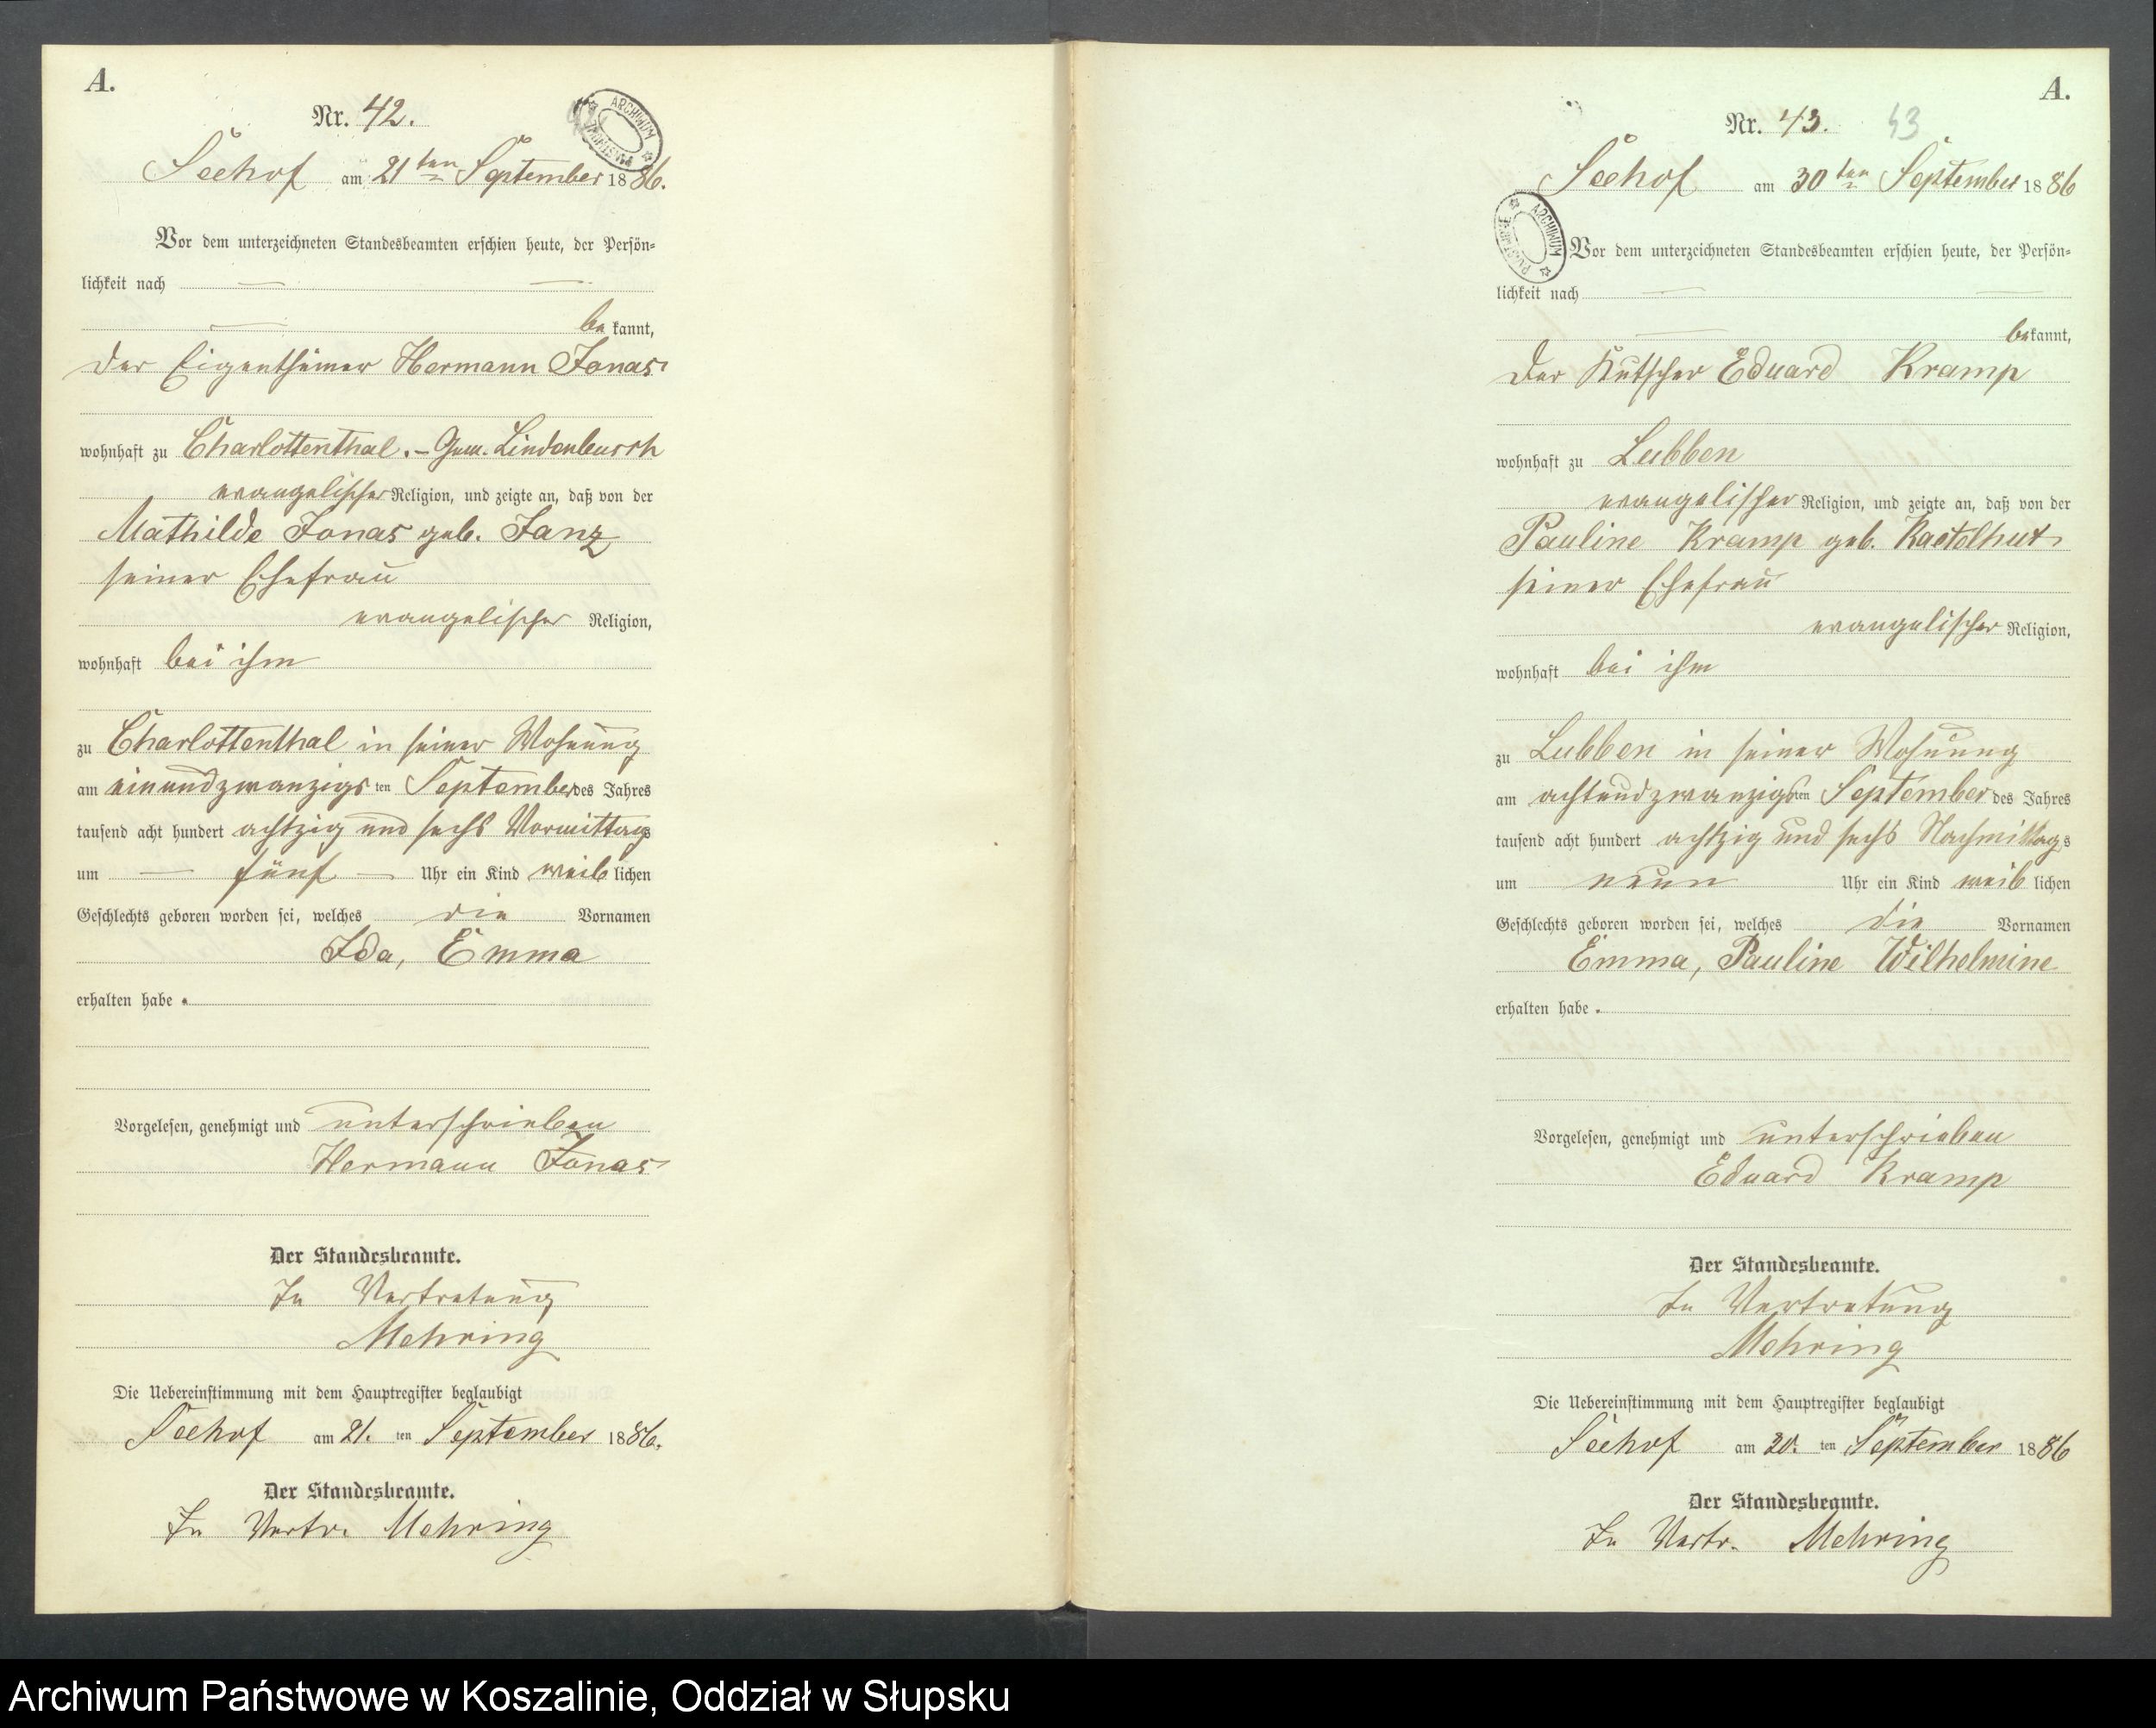 A.
Nr. 42.
ARCHIWUM PAŃSTWOWE
Seehof am 21ten September 1886.
Vor dem unterzeichneten Standesbeamten erschien heute, der Persön=
lichkeit nach
be kannt,
der Eigenthümer Hermann Jonas
wohnhaft zu Charlottenthal. – Gem. Lindenbusch
evangelischer Religion, und zeigte an, daß von der
Mathilde Jonas geb. Janz
seiner Ehefrau
evangelischer Religion,
wohnhaft bei ihm
zu Charlottenthal in seiner Wohnung
am einundzwanzigsten September des Jahres
tausend acht hundert achtzig und sechs Vormittags
um — fünf — Uhr ein Kind weib lichen
Geschlechts geboren worden sei, welches die Vornamen
Ida, Emma
erhalten habe.
Vorgelesen, genehmigt und unterschrieben
Hermann Jonas
Der Standesbeamte.
In Vertretung
Mehring
Die Uebereinstimmung mit dem Hauptregister beglaubigt
Seehof am 21. ten September 1886.
Der Standesbeamte.
In Vertr. Mehring
A.
Nr. 43. 43
Seehof am 30ten September 1886
ARCHIWUM PAŃSTWOWE
Vor dem unterzeichneten Standesbeamten erschien heute, der Persön=
lichkeit nach
bekannt,
der Kutscher Eduard Kramp
wohnhaft zu Lubben
evangelischer Religion, und zeigte an, daß von der
Pauline Kramp geb. Kastelhut
seiner Ehefrau
evangelischer Religion,
wohnhaft bei ihm
zu Lubben in seiner Wohnung
am achtundzwanzigsten September des Jahres
tausend acht hundert achtzig und sechs Nachmittags
um neun Uhr ein Kind weib lichen
Geschlechts geboren worden sei, welches die Vornamen
Emma, Pauline Wilhelmine
erhalten habe.
Vorgelesen, genehmigt und unterschrieben
Eduard Kramp
Der Standesbeamte.
In Vertretung
Mehring
Die Uebereinstimmung mit dem Hauptregister beglaubigt
Seehof am 30. ten September 1886
Der Standesbeamte.
In Vertr. Mehring
Archiwum Państwowe w Koszalinie, Oddział w Słupsku